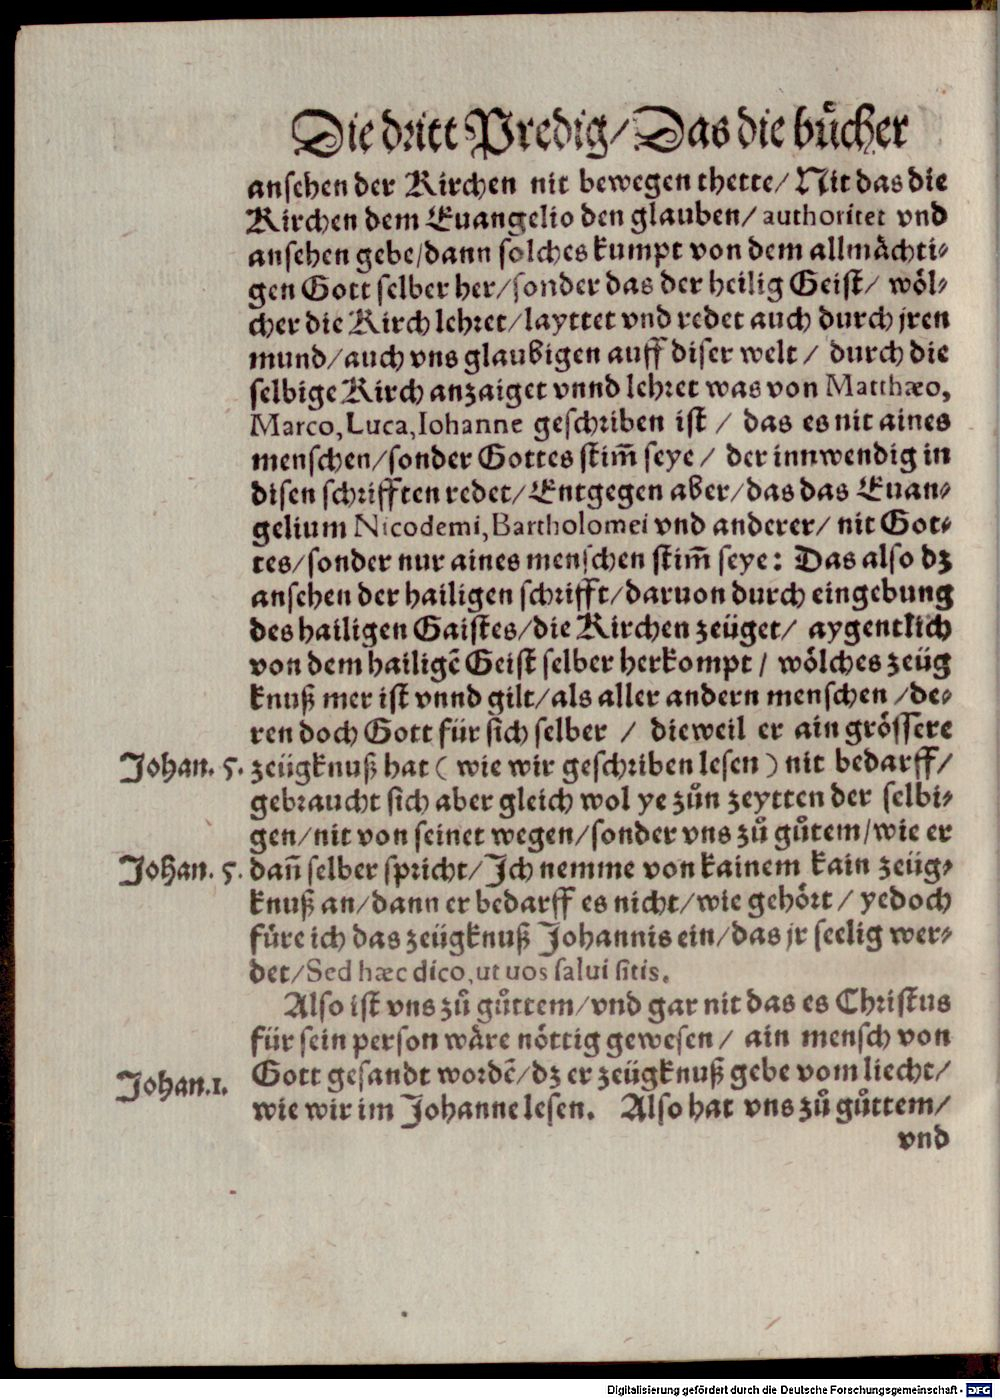 Die dritt Predig/ Das die bůcher
ansehen der Kirchen nit bewegen thette/ Nit das die
Kirchen dem Euangelio den glauben/ authoritet vnd
ansehen gebe/dann solches kumpt von dem allmächti-
gen Gott selber her/sonder das der heilig Geist/ wöl-
cher die Kirch lehret/layttet vnd redet auch durch jren
mund/auch vns glaubigen auff diser welt / durch die
selbige Kirch anzaiget vnnd lehret was von Matthæo,
Marco, Luca, Iohanne geschriben ist / das es nit aines
menschen/sonder Gottes stim̃ seye / der innwendig in
disen schrifften redet/ Entgegen aber/das das Euan-
gelium Nicodemi, Bartholomei vnd anderer/ nit Got-
tes/sonder nur aines menschen stim̃ seye: Das also dz
ansehen der hailigen schrifft/daruon durch eingebung
des hailigen Gaistes/die Kirchen zeüget/ aygentlich
von dem hailigẽ Geist selber herkompt / wölches zeüg
knuß mer ist vnnd gilt/als aller andern menschen /de-
ren doch Gott für sich selber / dieweil er ain grössere
Johan. 5. zeügknuß hat ( wie wir geschriben lesen ) nit bedarff/
gebraucht sich aber gleich wol ye zůn zeytten der selbi-
gen/nit von seinet wegen/sonder vns zů gůtem/wie er
Johan. 5. dañ selber spricht/ Ich nemme von kainem kain zeüg-
knuß an/dann er bedarff es nicht/wie gehört / yedoch
füre ich das zeügknuß Johannis ein/das jr seelig wer-
det/Sed hæc dico, ut uos salui sitis.
Also ist vns zů gůttem/vnd gar nit das es Christus
für sein person wäre nöttig gewesen / ain mensch von
Johan.1. Gott gesandt wordẽ/dz er zeügknuß gebe vom liecht/
wie wir im Johanne lesen. Also hat vns zů gůttem/
vnd
Digitalisierung gefördert durch die Deutsche Forschungsgemeinschaft - DFG